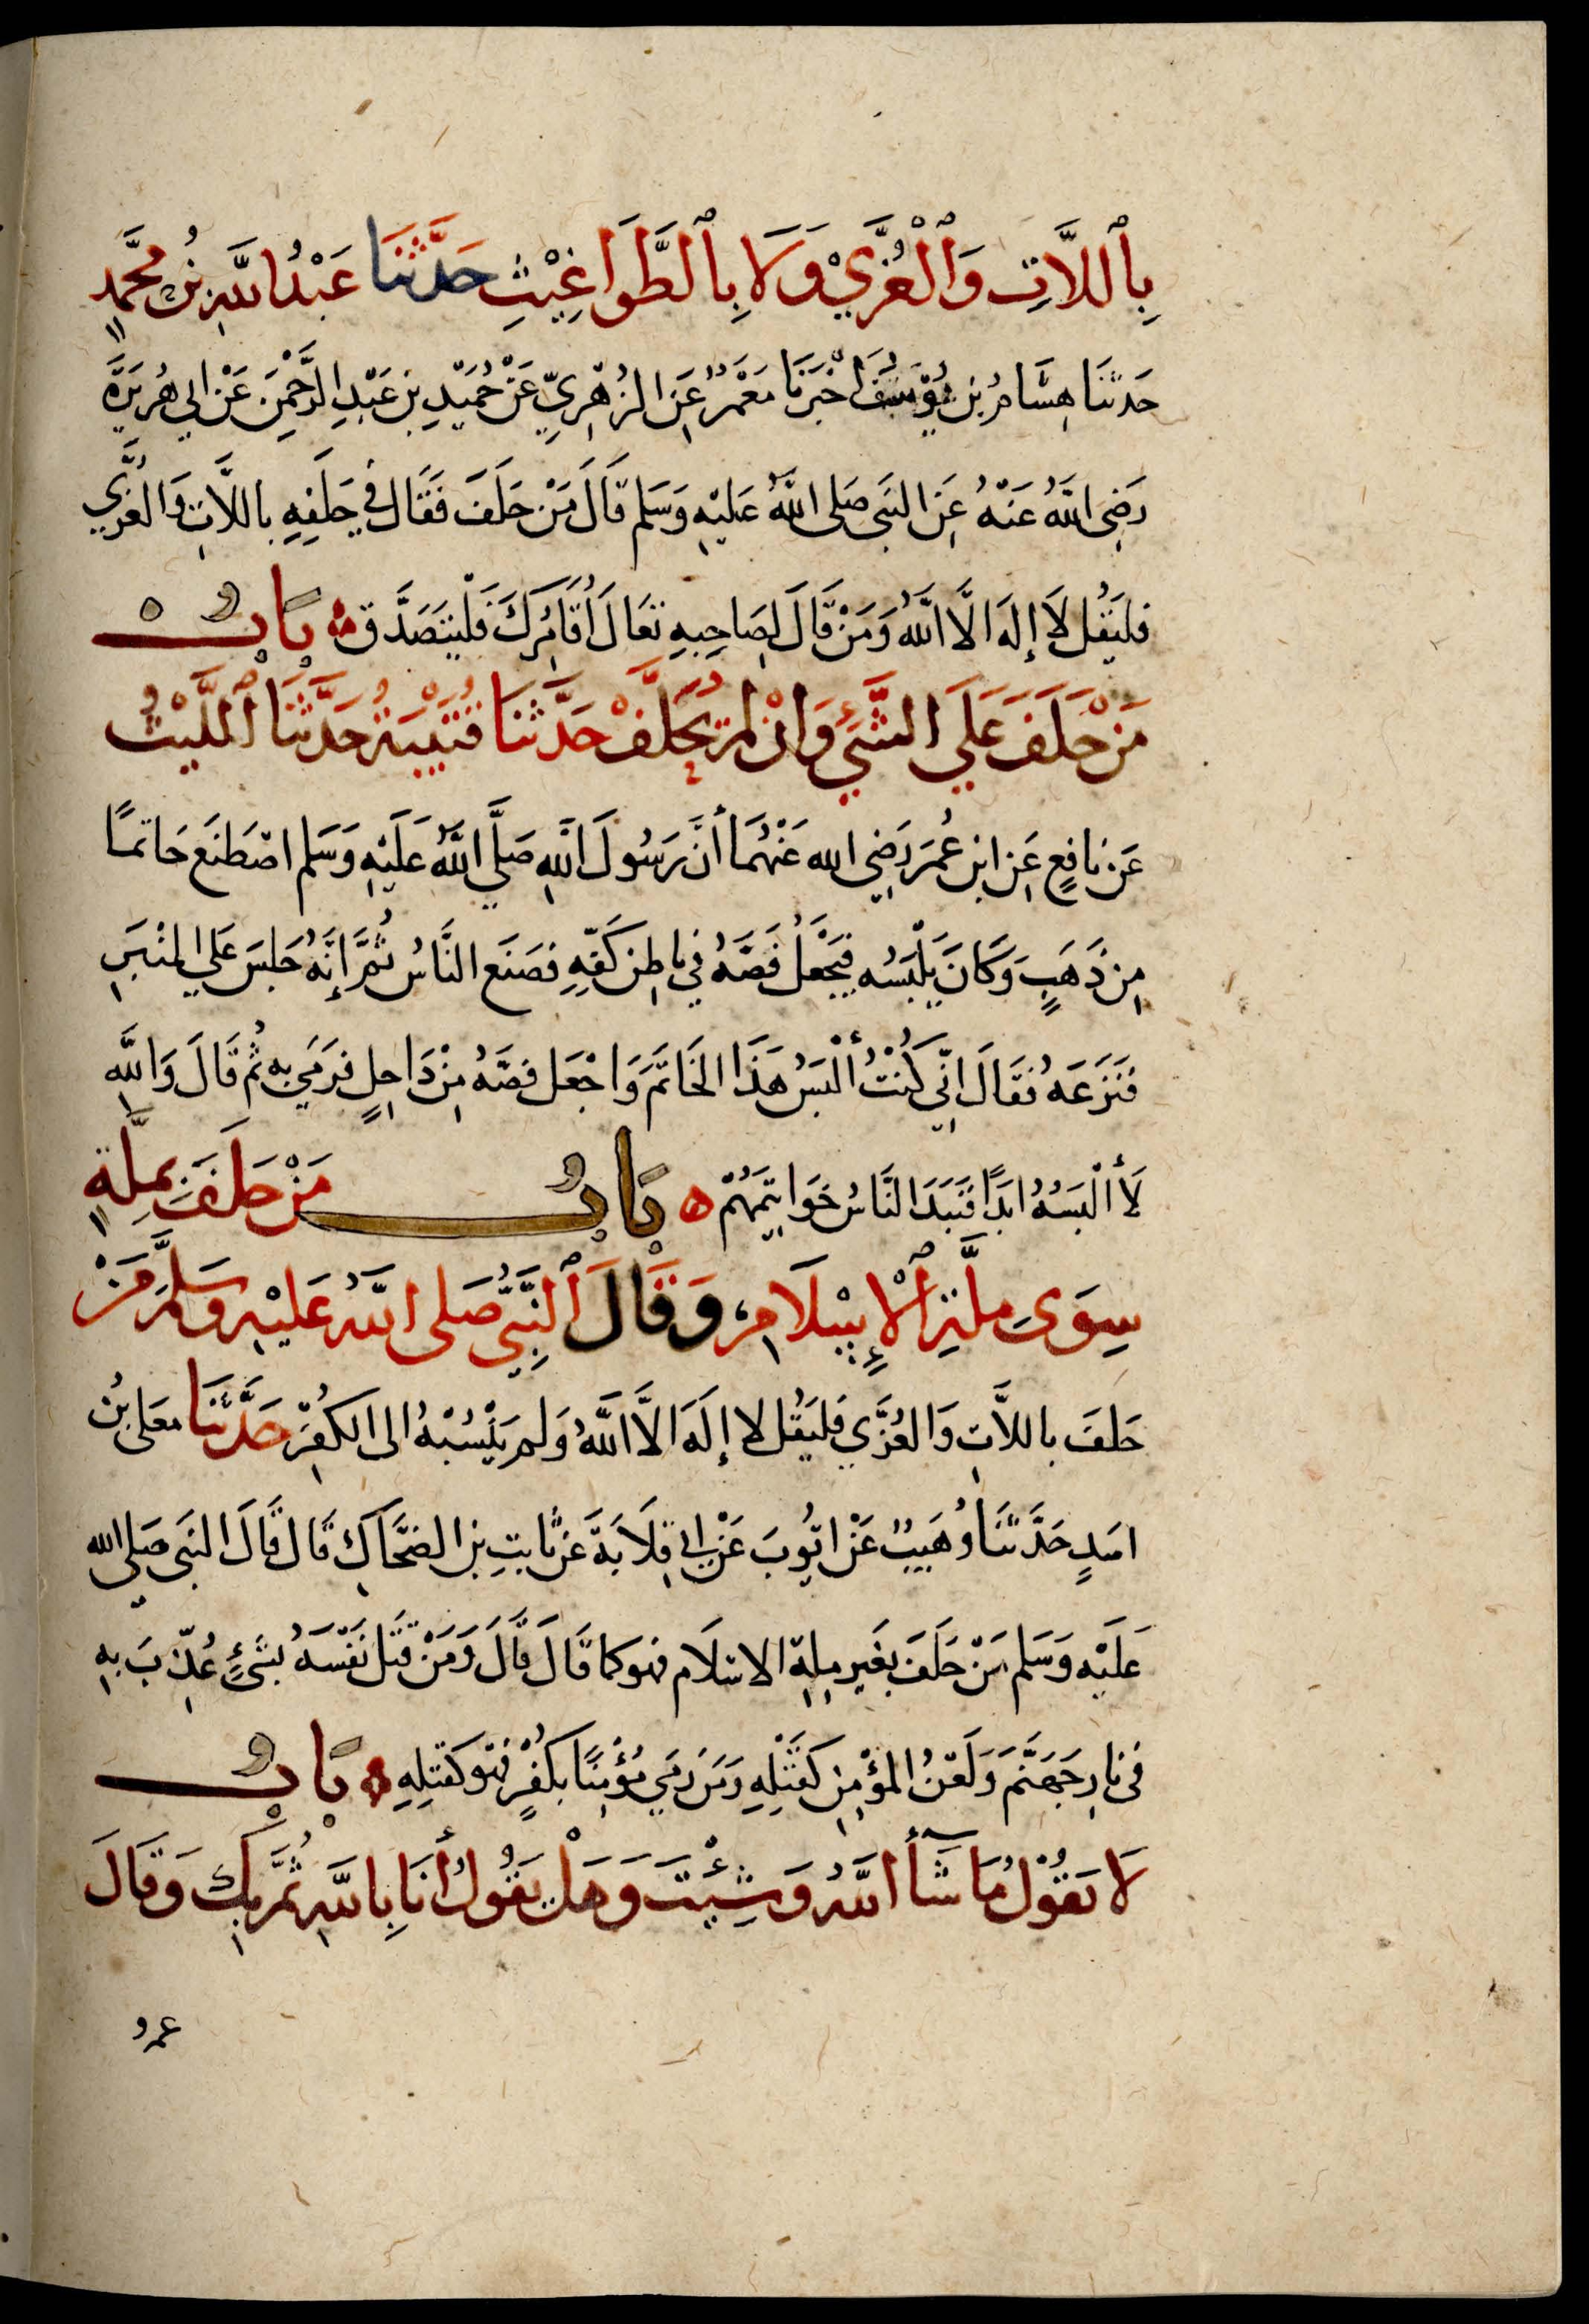 بِٱللَّاتِ وَٱلْعُزَّيْ وَلَا بِٱلطَّوَاغِيْثِ حَدَّثَنَا عَبْدُ اللَّهِ بْنُ مُحَمَّدٍ
حَدثنَا هِشَامُ بْن يُوْسُفَ أَخْبَرَنَا مَعْمَرٌ عَنِ الزُهْرِيِّ عَنْ حُمَيْدِ بْنِ عَبْدِ الرَّحْمٰنِ عَنْ ابي هُرَيْرَةَ
رَضِيَ اللَّهُ عَنْهُ عَنِ النَبَي صَلى اللَّهُ عَلَيْهِ وَسَلم قَالَ مَنْ حَلَفَ فَقَال في حَلَفِهِ باللَّاتِ وَالعُزَّي
فليَقُل لَا إِلَهَ الَّا اللَّهُ وَمَنْ قَالَ لِصَاحِبِهِ تَعَالَ أُقَامِرْكَ فَليَتَصَدَّق ه بَابٌ ه
مَنْ حَلَفَ عَلَي الشَّيْءِ وَانْ لم يُحَلَّفْ حَدَّثنَا قُتَيْبَةُ حَدَّثنَا ٱللَّيْثُ
عَن نافِعٍ عَنِ ابن عُمَرَ رَضِيَ الله عَنْهُمَا أَنَّ رَسُولَ اللَّهِ صَلَّي اللَّهُ عَلَيْهِ وَسَلم اصْطَنَعَ خَاتمًا
مِن ذَهَبٍ وَكَانَ يَلْبَسُه فيَجْعَلُ فَصَّهُ فِي بَاطِنِ كَفِّهِ فصَنَعَ النَّاسُ ثُمَّ إِنَّهُ جَلسَ عَلي المنْبَرِ
فَنَزَعَهُ فقَالَ انِّي كُنْتُ أَلْبَسُ هَذَا الخَاتَمَ وَاجْعَل فصَّهُ مِنْ دَاخِلٍ فرَمَي بِهِ ثُم قَالَ وَاللَّهِ
لَا أَلْبَسُهُ ابَدًا فَنَبَذَ النَّاسُ خَوَاتِيمَهُمْ ه بَابٌ مَنْ حَلَفَ بِمِلَّةٍ
سِوَى مِلَّةِ ٱلْإِسْلَامِ، وَقَالَ ٱلنَّبِيُّ صَلى اللَّهُ عَليْهِ وَسَلَّمَ مَنْ
حَلفَ باللَّاتِ وَالعُزَّي فليَقُل لا إِلَهَ الَّا اللَّهُ وَلم يَنْسُبْهُ الى الكُفرِ حَدَّثنَا معَلى بْنُ
اسَدٍ حَدَّثنَا وُهَيبٌ عَنْ ايُوبَ عَنْ ابي قِلَابَةَ عَن ثَابتِ بن الضحَّاكِ قَال قَالَ النَبَي صَلي الله
عَلَيْهِ وَسَلم مَنْ حَلَفَ بغَير مِلةِ الاسْلَام فهو كما قَالَ قَالَ وَمَنْ قَتَل نَفْسَهُ بشَيْءٍ عُذِّبَ بِهِ
في نارِ جَهَنَّمَ وَلَعْنُ المؤْمِنِ كَقَتْلِهِ وَمَن رَمَي مُؤْمِنًا بكُفْرٍ فهو كقتلِهِ ه بَابٌ
لَا يَقُوْلُ مَا شَآأَ اللَّهُ وَشِيْتَ وَهَلْ يَقُولُ أَنَا بِاللَّهِ ثُمَّ بِكَ وَقَالَ
عمرو